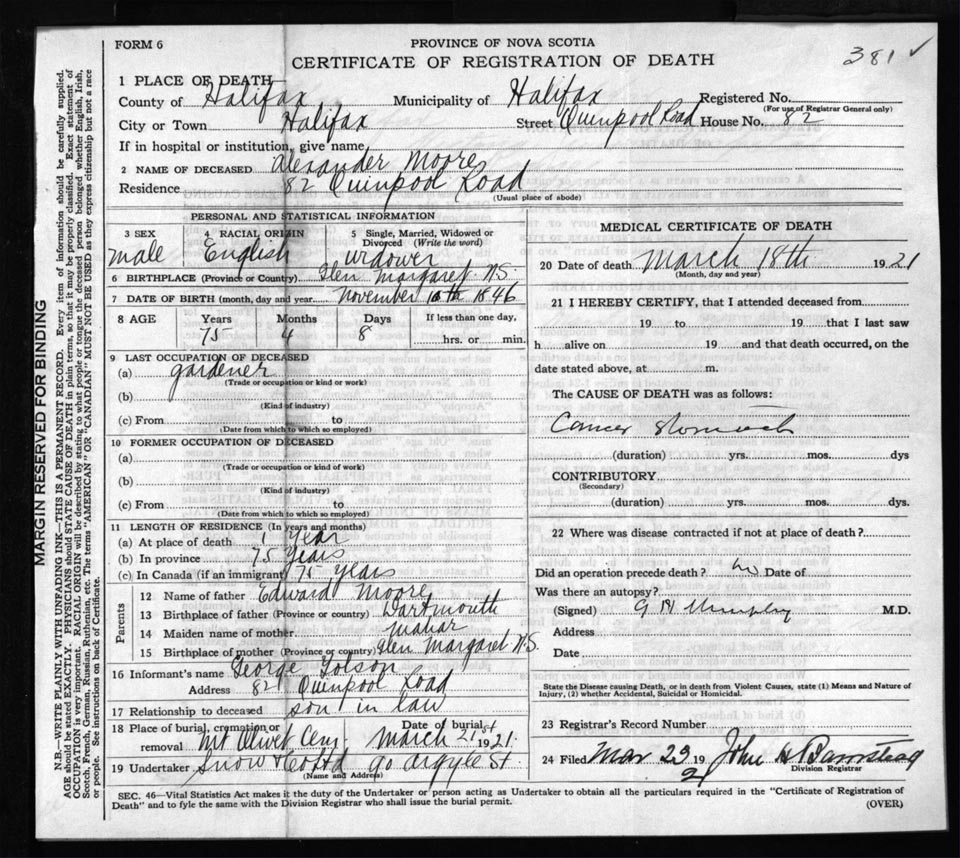 FORM 6
PROVINCE OF NOVA SCOTIA
CERTIFICATE OF REGISTRATION OF DEATH
381 ✓
1 PLACE OF DEATH—
County of Halifax Municipality of Halifax Registered No.
(For use of Registrar General only)
City or Town Halifax Street Quinpool Road House No. 82
If in hospital or institution, give name
2 NAME OF DECEASED Alexander Moore
Residence 82 Quinpool Road
(Usual place of abode)
PERSONAL AND STATISTICAL INFORMATION
3 SEX 4 RACIAL ORIGIN 5 Single, Married, Widowed or Divorced (Write the word)
male English widower
6 BIRTHPLACE (Province or Country) Glen Margaret N.S.
7 DATE OF BIRTH (month, day and year) November 10th 1846
8 AGE Years Months Days If less than one day,
75 4 8 hrs. or min.
9 LAST OCCUPATION OF DECEASED
(a) gardener
(Trade or occupation or kind or work)
(b)
(Kind of industry)
(c) From to
(Date from which to which so employed)
10 FORMER OCCUPATION OF DECEASED
(a)
(Trade or occupation or kind of work)
(b)
(Kind of industry)
(c) From to
(Date from which to which so employed)
11 LENGTH OF RESIDENCE (In years and months)
(a) At place of death 1 year
(b) In province 75 years
(c) In Canada (if an immigrant) 75 years
Parents
12 Name of father Edward Moore
13 Birthplace of father (Province or country) Dartmouth
14 Maiden name of mother Mahar
15 Birthplace of mother (Province or country) Glen Margaret N.S.
16 Informant's name George
Address 82 Quinpool Road
17 Relationship to deceased son in law
18 Place of burial, cremation or removal Mt Olivet Cem. Date of burial March 21st 1921
19 Undertaker Snow & Co Ltd 90 Argyle St.
(Name and Address)
MEDICAL CERTIFICATE OF DEATH
20 Date of death March 18th 1921
(Month, day and year)
21 I HEREBY CERTIFY, that I attended deceased from
19 to 19 that I last saw
h alive on 19 and that death occurred, on the
date stated above, at m.
The CAUSE OF DEATH was as follows:
Cancer Stomach
(duration) yrs. mos. dys
CONTRIBUTORY
(Secondary)
(duration) yrs. mos. dys.
22 Where was disease contracted if not at place of death?
Did an operation precede death? no Date of
Was there an autopsy?
(Signed) G M Murphy M.D.
Address
Date
State the Disease causing Death, or in death from Violent Causes, state (1) Means and Nature of
Injury, (2) whether Accidental, Suicidal or Homicidal.
23 Registrar's Record Number
24 Filed Mar 23 192 John H Barnstead
Division Registrar
SEC. 46—Vital Statistics Act makes it the duty of the Undertaker or person acting as Undertaker to obtain all the particulars required in the "Certificate of Registration of
Death" and to fyle the same with the Division Registrar who shall issue the burial permit.
(OVER)
MARGIN RESERVED FOR BINDING
N.B.—WRITE PLAINLY WITH UNFADING INK—THIS IS A PERMANENT RECORD. Every item of information should be carefully supplied.
AGE should be stated EXACTLY. PHYSICIANS should STATE CAUSE OF DEATH in plain terms, so that it may be properly classified. Exact statement of
OCCUPATION is very important. RACIAL ORIGIN will be described by stating to what people or tongue the deceased person belonged whether English, Irish,
Scotch, French, German, Russian, Ruthenian, etc. The terms "AMERICAN" OR "CANADIAN" MUST NOT BE USED as they express citizenship but not a race
or people. See instructions on back of Certificate.